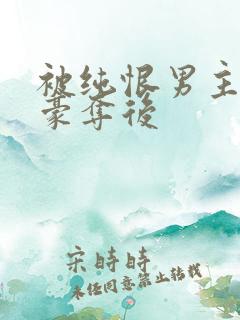 被纯恨男主
豪夺後
宋時時
未经同意禁止转载